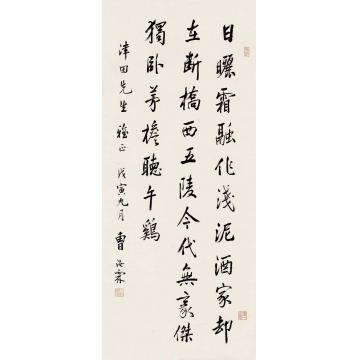 日曬霜融作淺泥酒家却
在断橋西五陵今代無豪傑
獨卧茅檐聽午鷄
津田先生雅正 戊寅九月 曹汝霖